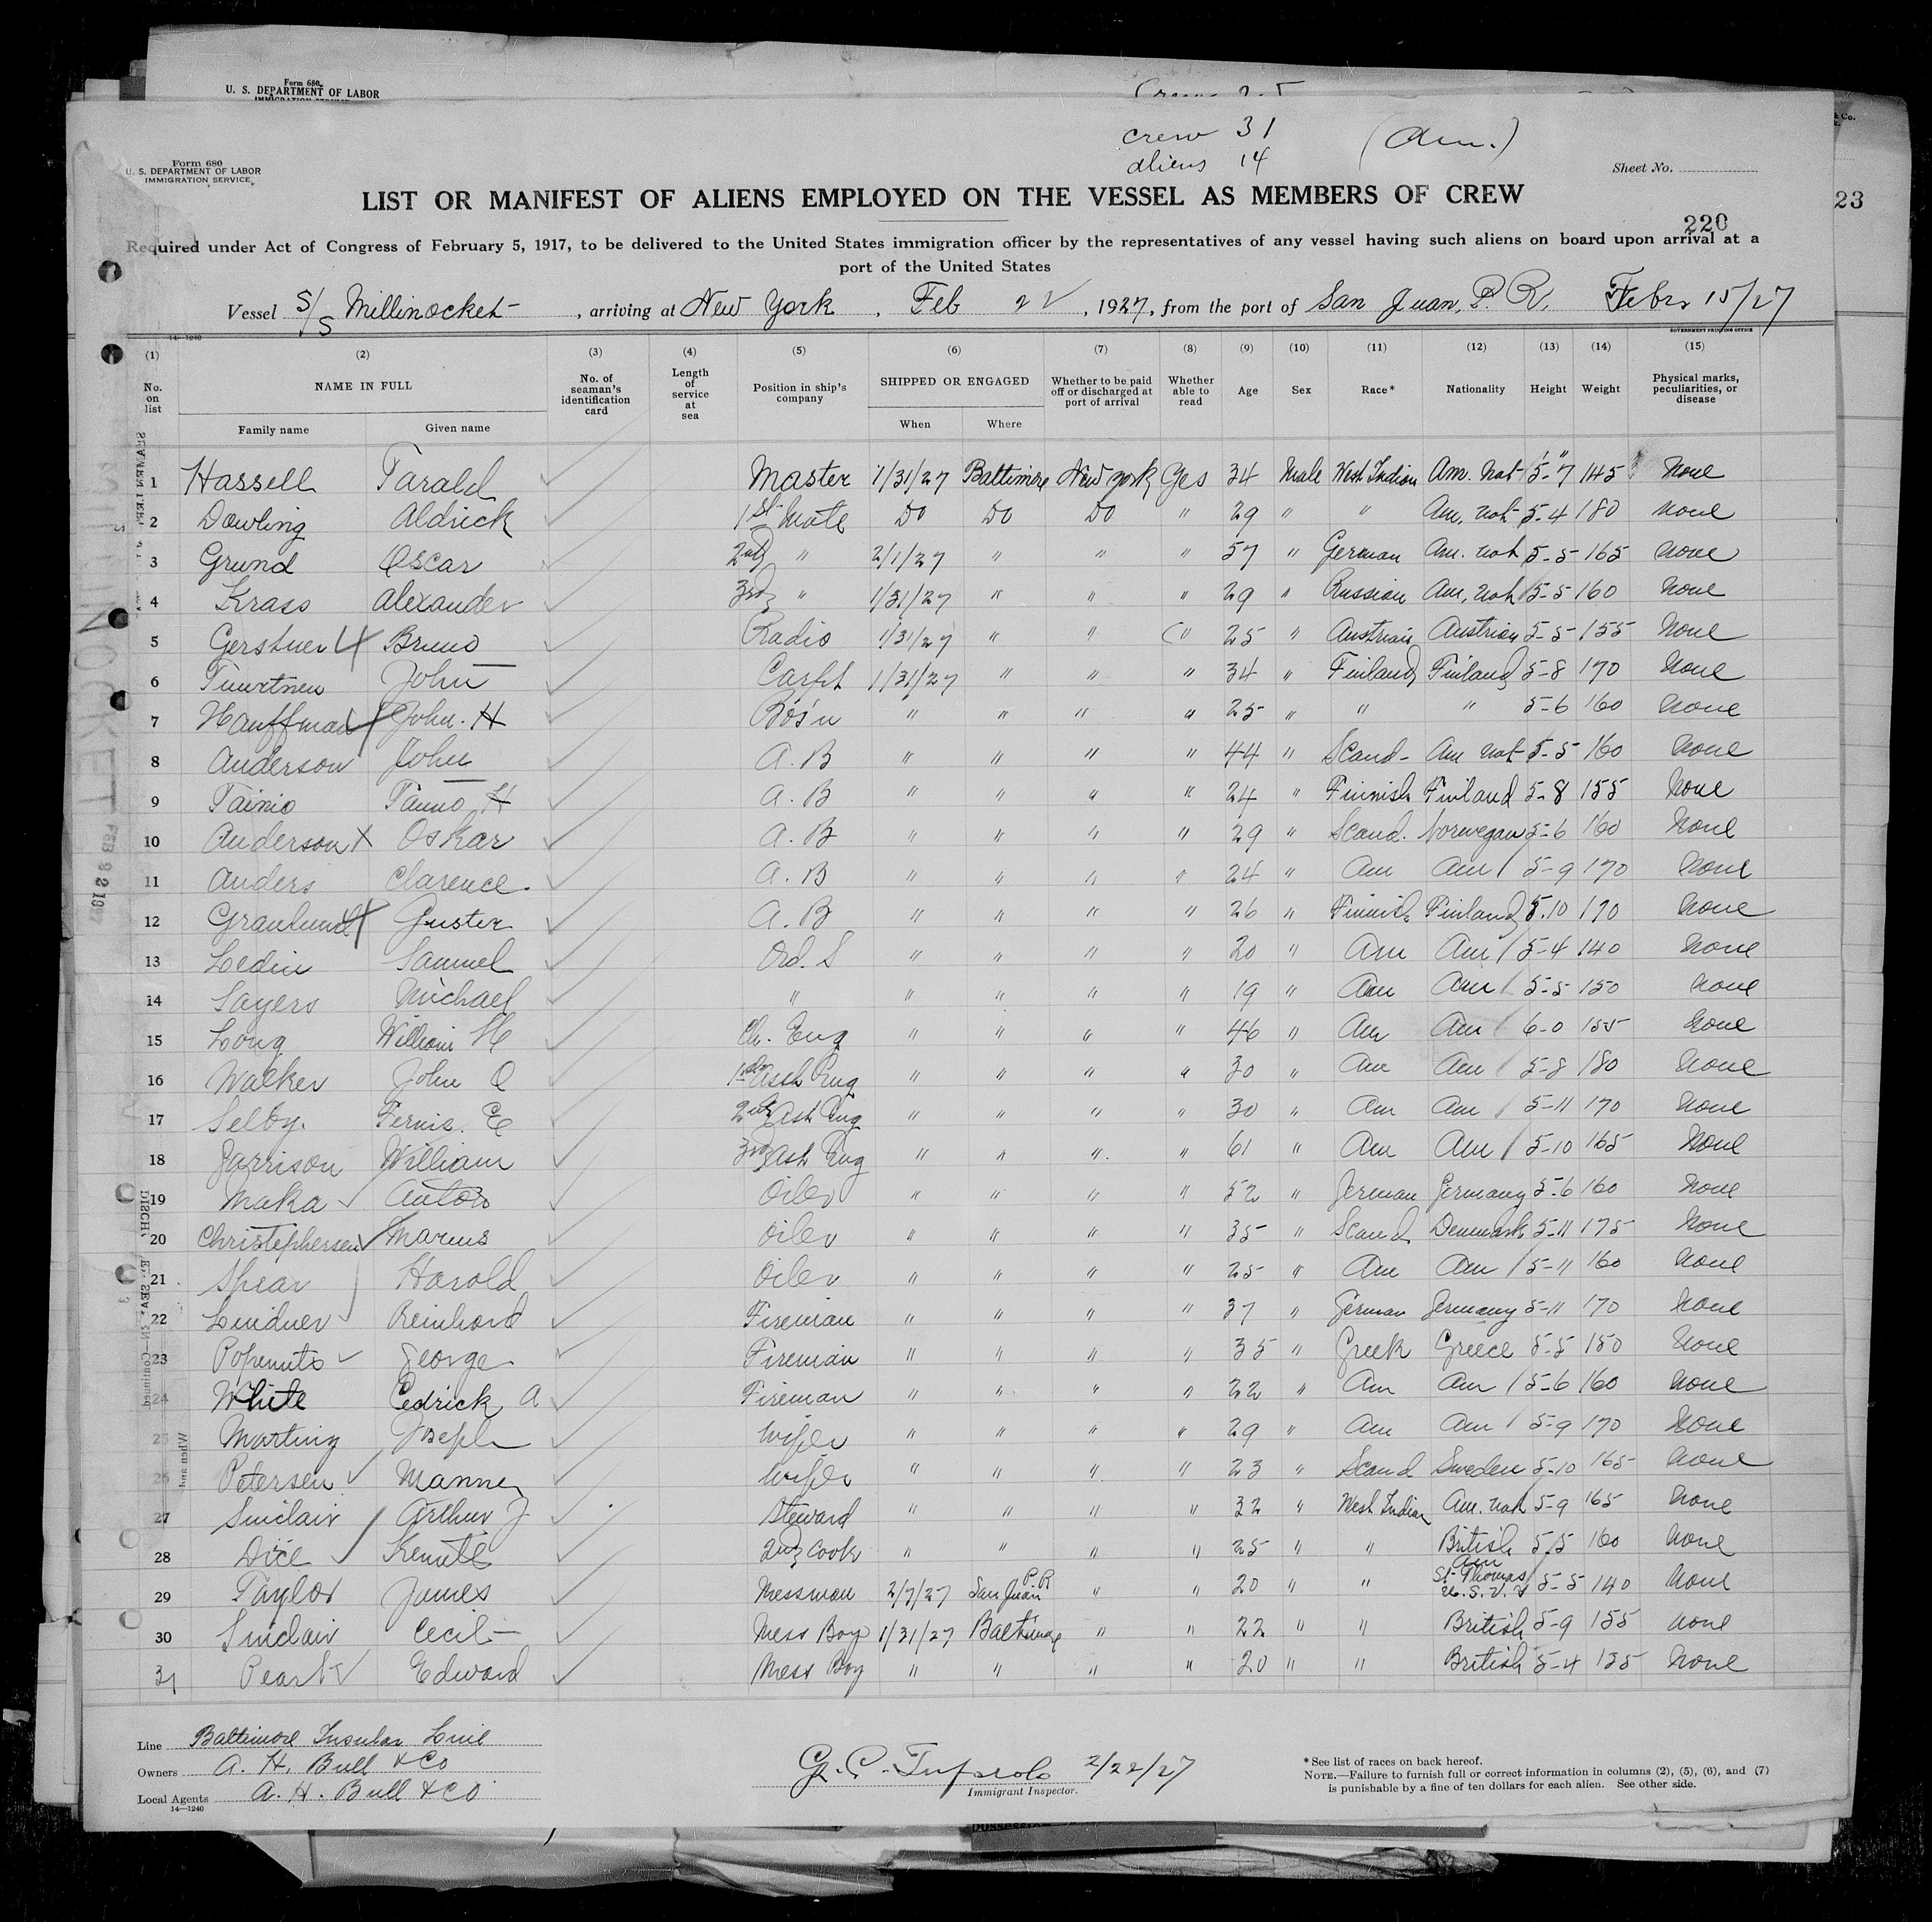 Form 680
U. S. DEPARTMENT OF LABOR
crew 31
aliens 14
(Am.)
Form 680
U. S. DEPARTMENT OF LABOR
IMMIGRATION SERVICE
Sheet No.
LIST OR MANIFEST OF ALIENS EMPLOYED ON THE VESSEL AS MEMBERS OF CREW
23
220
Required under Act of Congress of February 5, 1917, to be delivered to the United States immigration officer by the representatives of any vessel having such aliens on board upon arrival at a
port of the United States
Vessel S/S Millinocket, arriving at New York, Feb 22, 1927, from the port of San Juan, P. R. Feb 15/27
14-1240 GOVERNMENT PRINTING OFFICE
(1) (2) (3) (4) (5) (6) (7) (8) (9) (10) (11) (12) (13) (14) (15)
No. on list NAME IN FULL Family name Given name No. of seaman's identification card Length of service at sea Position in ship's company SHIPPED OR ENGAGED When Where Whether to be paid off or discharged at port of arrival Whether able to read Age Sex Race* Nationality Height Weight Physical marks, peculiarities, or disease
1 Hassell Tarald Master 1/31/27 Baltimore New York Yes 34 Male West Indian Am. nat 5-7 145 None
2 Dowling Aldrick 1st Mate Do Do Do " 29 " " Am. nat 5-4 180 None
3 Grund Oscar 2nd " 2/1/27 " " " 57 " German Am. nat 5-5 165 None
4 Krass Alexander 3rd " 1/31/27 " " " 29 " Russian Am. nat 5-5 160 None
5 Gerstner Bruno Radio 1/31/27 " " " 25 " Austrian Austrian 5-5 155 None
6 John Carpt 1/31/27 " " " 34 " Finland Finland 5-8 170 None
7 Hauffman John. H Bos'n " " " " 25 " " " 5-6 160 None
8 Anderson John A. B " " " " 44 " Scand- Am nat 5-5 160 None
9 Tainio Tauno H A. B " " " " 24 " Finnish Finland 5-8 155 None
10 Anderson Oskar A. B " " " " 29 " Scand. Norwegan 5-6 160 None
11 Anders Clarence. A. B " " " " 24 " Am Am 5-9 170 None
12 Granlund Guster A. B " " " " 26 " Finnish Finland 5.10 170 None
13 Ledin Samuel Ord. S " " " " 20 " Am Am 5-4 140 None
14 Sayers Michael " " " " " 19 " Am Am 5-5 150 None
15 Long William H Ch. Eng " " " " 46 " Am Am 6-0 155 None
16 Walker John O 1st Asst Eng " " " " 30 " Am Am 5-8 180 None
17 Selby. Fernis. E 2nd Ast Eng " " " " 30 " Am Am 5-11 170 None
18 Garrison William 3rd Ast Eng " " " " 61 " Am Am 5-10 165 None
19 Maka Anton Oiler " " " " 52 " German Germany 5-6 160 None
20 Christephersen Marius Oiler " " " " 35 " Scand Denmark 5-11 175 None
21 Spear Harold Oiler " " " " 25 " Am Am 5-11 160 None
22 Lindner Reinhard Fireman " " " " 37 " German Germany 5-11 170 None
23 George Fireman " " " " 35 " Greek Greece 5-5 150 None
24 White Cedrick A Fireman " " " " 22 " Am Am 5-6 160 None
25 Marting Joseph Wiper " " " " 29 " Am Am 5-9 170 None
26 Petersen Manne Wiper " " " " 23 " Scand Sweden 5-10 165 None
27 Sinclair Arthur J Steward " " " " 32 " West Indian Am. nat 5-9 165 None
28 Dice 2nd Cook " " " " 25 " " British 5-5 160 None
29 Taylor James Messman 2/7/27 San Juan P.R " " 20 " " Am St-Thomas U. S. V. I 5-5 140 None
30 Sinclair Cecil Mess Boy 1/31/27 Baltimore " " 22 " " British 5-9 155 None
31 Peart Edward Mess Boy " " " " 20 " " British 5-4 135 None
Line Baltimore Insular Line
Owners A. H. Bull & Co
Local Agents A. H. Bull & Co
14-1240
2/22/27
Immigrant Inspector.
*See list of races on back hereof.
NOTE.—Failure to furnish full or correct information in columns (2), (5), (6), and (7)
is punishable by a fine of ten dollars for each alien. See other side.